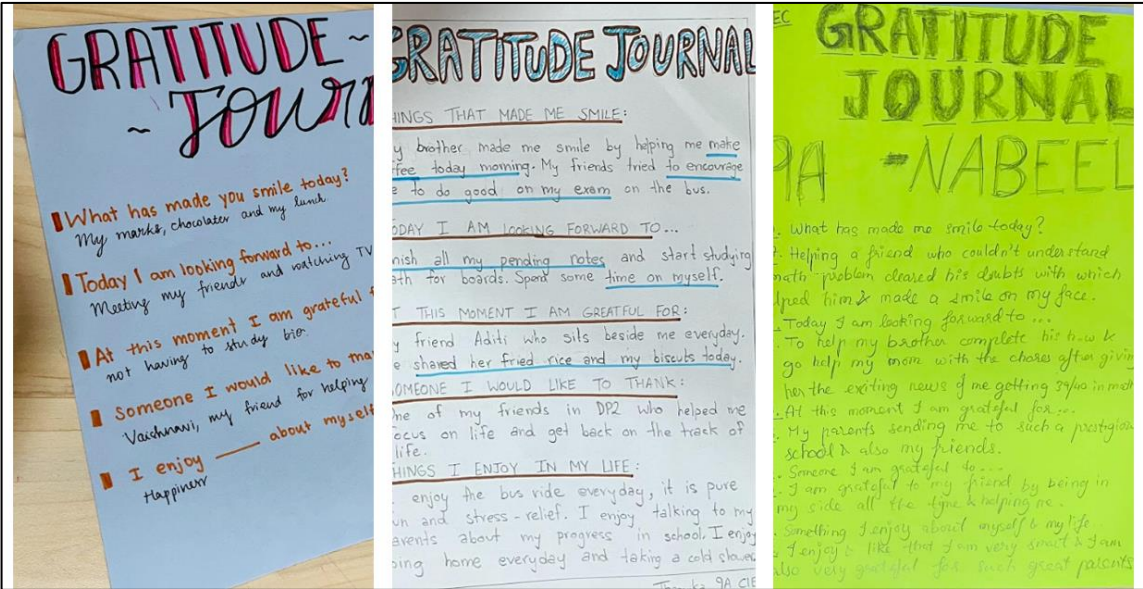 GRATITUDE ~
~ JOUR
What has made you smile today?
My marks, chocolates and my lunch
Today I am looking forward to...
Meeting my friends and watching TV
At this moment I am grateful f
not having to study bio.
Someone I would like to than
Vaishnavi, my friend for helping
I enjoy ___ about myself
Happiness
GRATITUDE JOURNAL
HINGS THAT MADE ME SMILE:
y brother made me smile by helping me make
ffee today morning. My friends tried to encourage
e to do good on my exam on the bus.
ODAY I AM LOOKING FORWARD TO...
nish all my pending notes and start studying
ath for boards. Spend some time on myself.
T THIS MOMENT I AM GREATFUL FOR:
y friend Aditi who sits beside me everyday.
e shared her fried rice and my biscuts today.
OMEONE I WOULD LIKE TO THANK:
ne of my friends in DP2 who helped me
ocus on life and get back on the track of
life.
HINGS I ENJOY IN MY LIFE:
enjoy the bus ride everyday, it is pure
un and stress-relief. I enjoy talking to my
arents about my progress in school. I enjoy
oing home everyday and taking a cold shower
9A CIE
EC
GRATITUDE
JOURNAL
9A - NABEEL
. What has made me smile today?
. Helping a friend who couldn't understand
math problem cleared his doubts with which
lped him & made a smile on my face.
. Today I am looking forward to...
. To help my brother complete his h.w &
go help my mom with the chores after givin
her the exiting news of me getting 39/40 in
. At this moment I am grateful for...
. My parents sending me to such a prestigiou
school & also my friends.
. Someone I am grateful to....
. I am grateful to my friend by being in
my side all the time & helping me.
. Something I enjoy about myself & my life.
. I enjoy & like that I am very smart & I am
also very grateful for such great parents